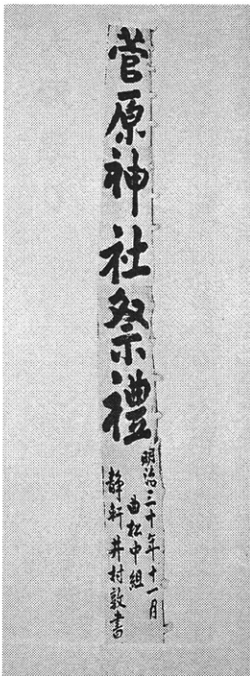 菅原神社祭禮
明治三十年十一月
曲松中組
静軒井村敦書